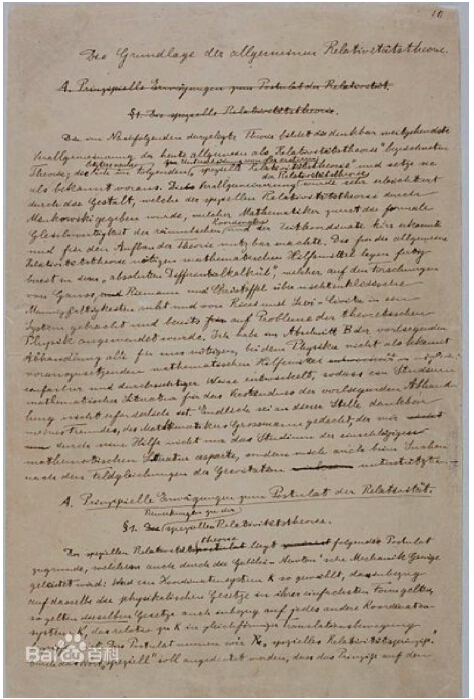 10
Die Grundlage der allgemeinen Relativitätstheorie.
A. Prinzipielle Erwägungen zum Postulat der Relativität.
§1. Die spezielle Relativitätstheorie.
Die im Nachfolgenden dargelegte Theorie bildet die denkbar weitgehendste
Verallgemeinerung der heute allgemein als "Relativitätstheorie" bezeichneten
Theorie; die im folgenden "spezielle Relativitätstheorie" und setze sie
als bekannt voraus. Verallgemeinerung wurde sehr erleichtert
durch die Gestalt, welche der speziellen Relativitätstheorie durch
Minkowski gegeben wurde, welcher Mathematiker zuerst die formale
Gleichwertigkeit der räumlichen und der Zeitkoordinate klar erkannte
und für den Aufbau der Theorie nutzbar machte. Die für die allgemeine
Relativitätstheorie nötigen mathematischen Hilfsmittel lagen fertig
bereit in dem "absoluten Differentialkalkül", welcher auf den Forschungen
von Gauss, Riemann und Christoffel über nichteuklidische
Mannigfaltigkeiten ruht und von Ricci und Levi-Civita in ein
System gebracht und bereits auf Probleme der theoretischen
Physik angewendet wurde. Ich habe im Abschnitt B der vorliegenden
Abhandlung alle für uns nötigen, bei dem Physiker nicht als bekannt
vorauszusetzenden mathematischen Hilfsmittel
einfacher und durchsichtiger Weise entwickelt, sodass ein Studium
mathematischer Literatur für das Verständnis der vorliegenden Abhand
lung nicht erforderlich ist. Endlich sei an dieser Stelle dankbar
meines Freundes, des Mathematikers Grossmann gedacht, der mir
durch seine Hilfe nicht nur das Studium der einschlägigen
mathematischen Literatur ersparte, sondern mich auch beim Suchen
nach den Feldgleichungen der Gravitation unterstützte.
A. Prinzipielle Erwägungen zum Postulat der Relativität.
Bemerkungen zu der
§1. Die speziellen Relativitätstheorie.
theorie
Der speziellen Relativitäts liegt folgendes Postulat
zugrunde, welchem auch durch die Galilei-Newton'sche Mechanik Genüge
geleistet wird: Wird ein Koordinatensystem K so gewählt, dass inbezug
auf dasselbe die physikalischen Gesetze in ihrer einfachsten Form gelten,
so gelten dieselben Gesetze auch inbezug auf jedes andere Koordinaten-
system K', das relativ zu K in gleichförmiger Translationsbewegung
Dies Postulat nennen wir "spezielles Relativitätsprinzip".
"speziell" soll angedeutet werden, dass das Prinzip auf den
Bai百科